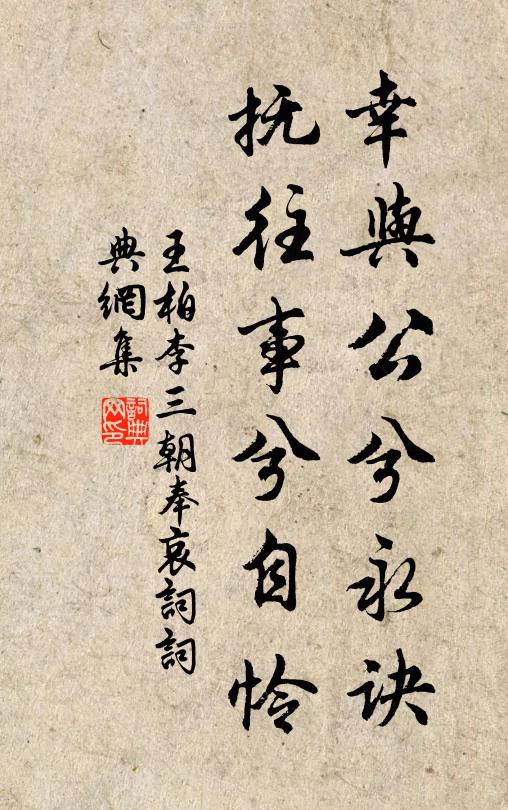 幸與公兮永訣
抚往事兮自怜
王柏李三朝奉哀詞詞
典網集
詞典
网印